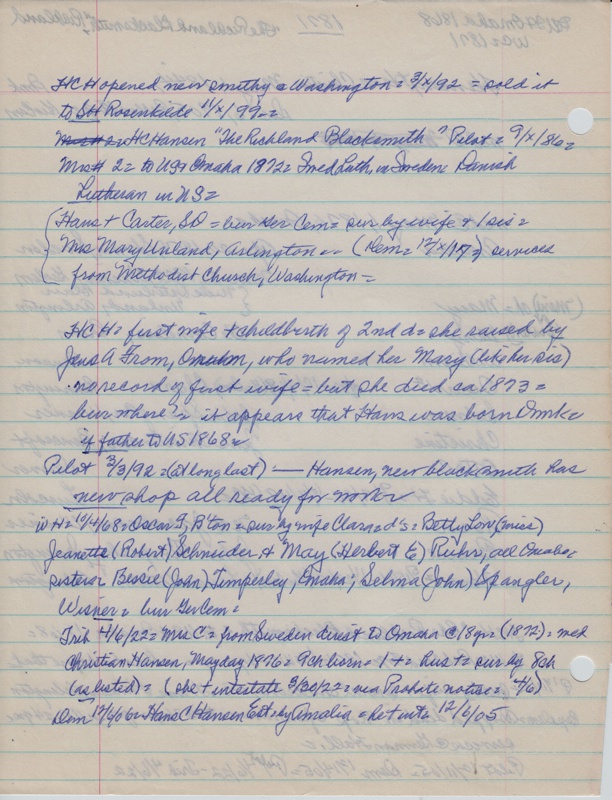 HCH opened new smithy @ Washington = 3/x/92 = sold it
to SH Rosenkilde 11/x/99 =
HC Hansen "The Richland Blacksmith" ? Pilot = 9/x/86 =
Mrs H 2 = to US @ Omaha 1872 = Fmed Luth, in Sweden = Danish
Lutheran in US =
Hans + Carter, SD = bur Ger Cem = sur by wife + 1 sis =
Mrs Mary Unland, Arlington = (Dem = 12/x/17 =) services
from Methodist Church, Washington =
HCH = first wife + childbirth of 2nd d = she raised by
Jens A From, Omaha, who named her Mary (like her sis)
no record of first wife = but she died ca 1873 =
bur where? = it appears that Hans was born Dmke
if father to US 1868 =
Pilot 3/3/92 = (at long last) — Hansen, new blacksmith has
new shop all ready for work
WH = 10/4/68 = Oscar G, B'ton = sur by wife Clara = d's = Betty Lou (miss)
Jeanette (Robert) Schneider & May (Herbert E) Ruhr, all Omaha =
sisters = Bessie (John) Timperley, Omaha; Selma (John) Spangler,
Wisner = bur Ger Cem =
Trib 4/6/22 = Mrs C = from Sweden direct to Omaha @ 18 yrs (1872) = med
Christian Hansen, May day 1876 = 9 ch born = 1 + = hus + = sur by 8 ch
(as listed) = (she + intestate 3/30/22 = via Probate notice = 4/6)
Dem 12/6/06 = Hans C Hansen Est, by Amalia = het intr 12/6/05